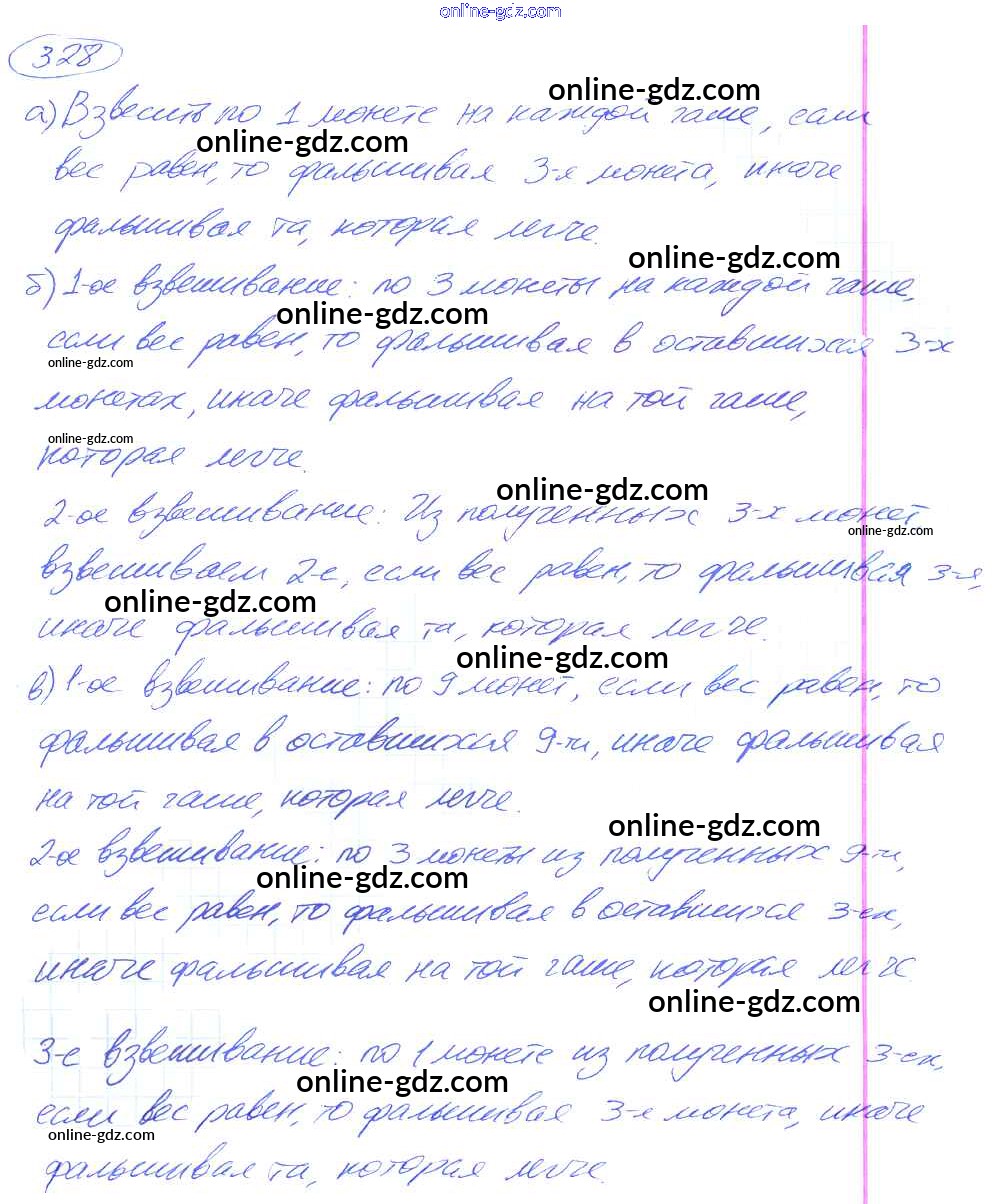 online-gdz.com
328
online-gdz.com
а) Взвесить по 1 монете на каждой чаше, если
online-gdz.com
вес равен, то фальшивая 3-я монета, иначе
фальшивая та, которая легче.
online-gdz.com
б) 1-ое взвешивание: по 3 монеты на каждой чаше,
online-gdz.com
если вес равен, то фальшивая в оставшихся 3-х
online-gdz.com
монетах, иначе фальшивая на той чаше,
online-gdz.com
которая легче.
online-gdz.com
2-ое взвешивание: Из полученных 3-х монет
online-gdz.com
взвешиваем 2-е, если вес равен, то фальшивая 3-я,
online-gdz.com
иначе фальшивая та, которая легче.
online-gdz.com
в) 1-ое взвешивание: по 9 монет, если вес равен, то
фальшивая в оставшихся 9-ти, иначе фальшивая
на той чаше, которая легче.
online-gdz.com
2-ое взвешивание: по 3 монеты из полученных 9-ти,
online-gdz.com
если вес равен, то фальшивая в оставшихся 3-ех,
иначе фальшивая на той чаше, которая легче.
online-gdz.com
3-е взвешивание: по 1 монете из полученных 3-ех,
online-gdz.com
если вес равен, то фальшивая 3-я монета, иначе
online-gdz.com
фальшивая та, которая легче.